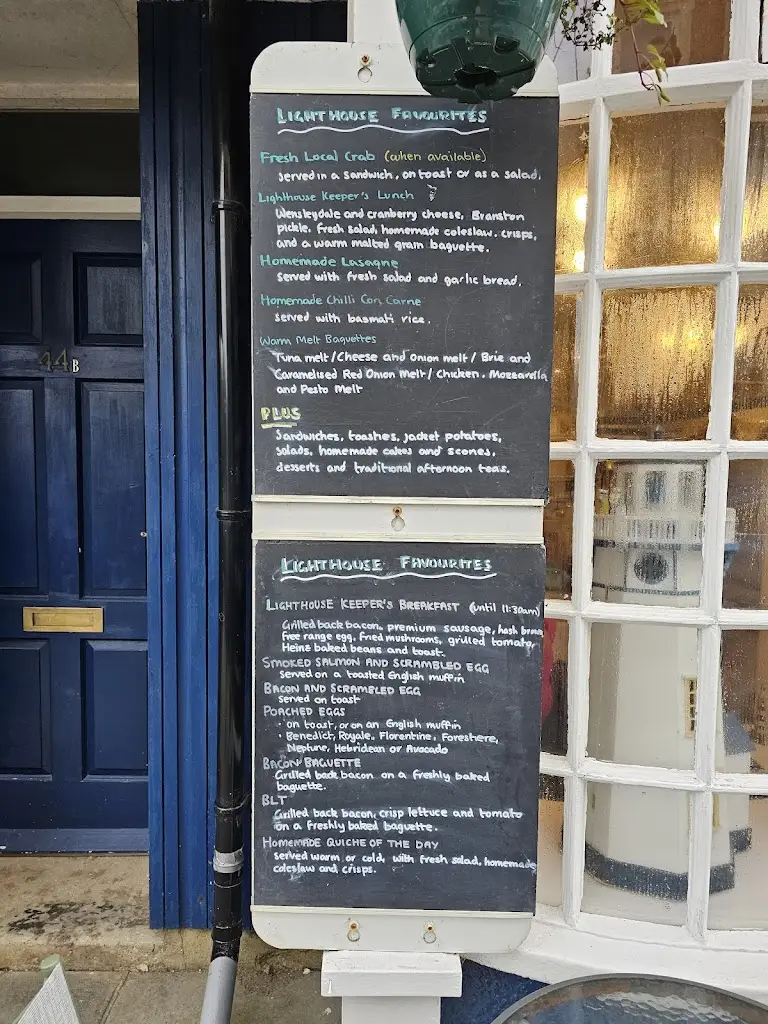 LIGHTHOUSE FAVOURITES
Fresh Local Crab (when available)
served in a sandwich, on toast or as a salad.
Lighthouse Keeper's Lunch
Wensleydale and cranberry cheese, Branston
pickle, fresh salad, homemade coleslaw, crisps,
and a warm malted grain baguette.
Homemade Lasagne
served with fresh salad and garlic bread.
Homemade Chilli Con Carne
served with basmati rice.
Warm Melt Baguettes
Tuna melt/Cheese and Onion melt/ Brie and
Caramelised Red Onion Melt/ Chicken, Mozzarella
and Pesto Melt
PLUS
Sandwiches, toasties, jacket potatoes,
salads, homemade cakes and scones,
desserts and traditional afternoon teas.
44B
LIGHTHOUSE FAVOURITES
LIGHTHOUSE KEEPER'S BREAKFAST (until 11:30am)
Grilled back bacon, premium sausage, hash brown
free range egg, fried mushrooms, grilled tomato,
Heinz baked beans and toast.
SMOKED SALMON AND SCRAMBLED EGG
served on a toasted English muffin
BACON AND SCRAMBLED EGG
served on toast
POACHED EGGS
· on toast, or on an English muffin
· Benedict, Royale, Florentine, Forestiere,
Neptune, Hebridean or Avocado
BACON BAGUETTE
Grilled back bacon on a freshly baked
baguette.
BLT
Grilled back bacon, crisp lettuce and tomato
on a freshly baked baguette.
HOMEMADE QUICHE OF THE DAY
served warm or cold, with fresh salad, homemade
coleslaw and crisps.